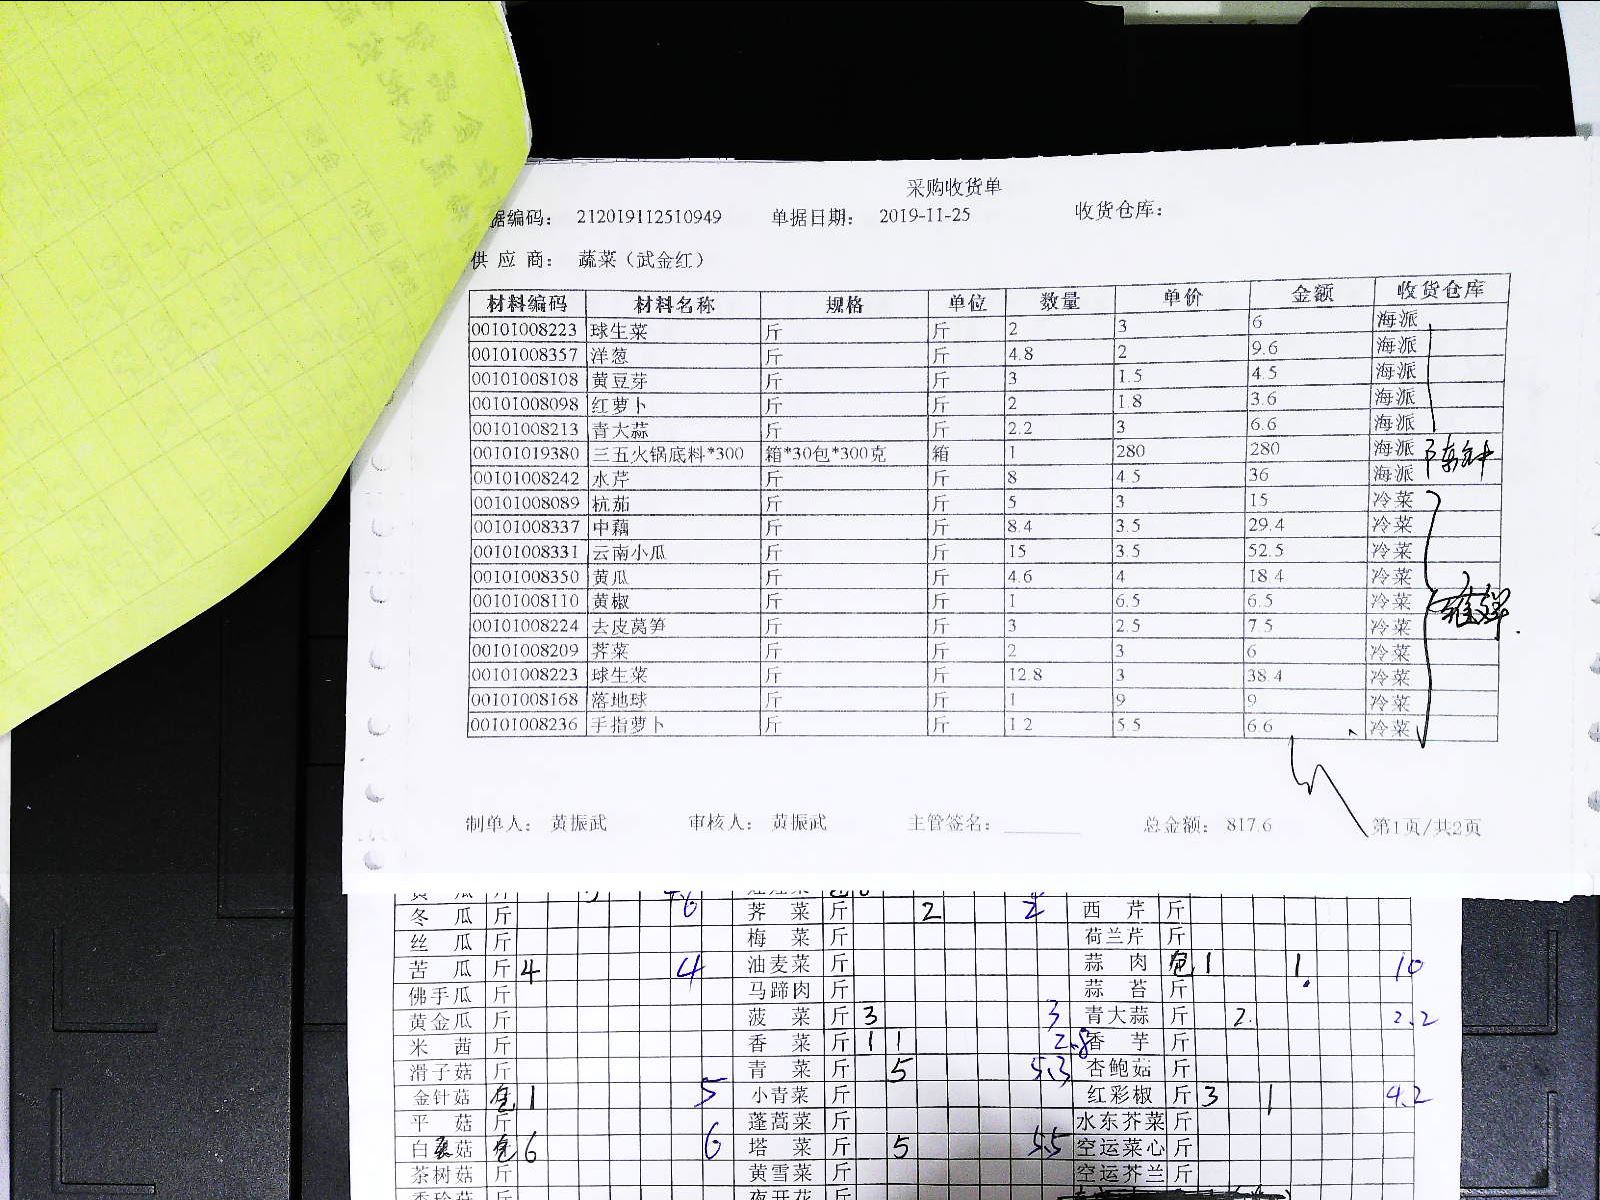 采购收货单
据编码： 212019112510949 单据日期： 2019-11-25 收货仓库：
供 应 商： 蔬菜（武金红）
材料编码 材料名称 规格 单位 数量 单价 金额 收货仓库
00101008223 球生菜 斤 斤 2 3 6 海派
00101008357 洋葱 斤 斤 4.8 2 9.6 海派
00101008108 黄豆芽 斤 斤 3 1.5 4.5 海派
00101008098 红萝卜 斤 斤 2 1.8 3.6 海派
00101008213 青大蒜 斤 斤 2.2 3 6.6 海派
00101019380 三五火锅底料*300 箱*30包*300克 箱 1 280 280 海派
00101008242 水芹 斤 斤 8 4.5 36 海派
00101008089 杭茄 斤 斤 5 3 15 冷菜
00101008337 中藕 斤 斤 8.4 3.5 29.4 冷菜
00101008331 云南小瓜 斤 斤 15 3.5 52.5 冷菜
00101008350 黄瓜 斤 斤 4.6 4 18.4 冷菜
00101008110 黄椒 斤 斤 1 6.5 6.5 冷菜
00101008224 去皮莴笋 斤 斤 3 2.5 7.5 冷菜
00101008209 荠菜 斤 斤 2 3 6 冷菜
00101008223 球生菜 斤 斤 12.8 3 38.4 冷菜
00101008168 落地球 斤 斤 1 9 9 冷菜
00101008236 手指萝卜 斤 斤 1.2 5.5 6.6 冷菜
制单人： 黄振武 审核人： 黄振武 主管签名： 总金额： 817.6 第1页/共2页
冬 瓜 斤 荠 菜 斤 2 2 西 芹 斤
丝 瓜 斤 梅 菜 斤 荷兰芹 斤
苦 瓜 斤 4 4 油麦菜 斤 蒜 肉 包 1 1 10
佛手瓜 斤 马蹄肉 斤 蒜 苔 斤
黄金瓜 斤 菠 菜 斤 3 3 青大蒜 斤 2 2.2
米 茜 斤 香 菜 斤 1 1 2.8 香 芋 斤
滑子菇 斤 青 菜 斤 5 5.3 杏鲍菇 斤
金针菇 包 1 5 小青菜 斤 红彩椒 斤 3 1 4.2
平 菇 斤 蓬蒿菜 斤 水东芥菜 斤
白 菇 包 6 6 塔 菜 斤 5 5.5 空运菜心 斤
茶树菇 斤 黄雪菜 斤 空运芥兰 斤